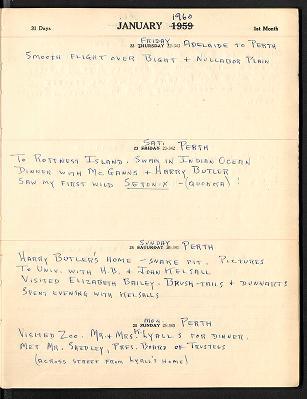 1960
31 Days JANUARY 1959 1st Month
FRIDAY ADELAIDE TO PERTH
22 THURSDAY 22-343
SMOOTH FLIGHT OVER BIGHT + NULLABOR PLAIN
SAT. PERTH
23 FRIDAY 23-342
TO ROTTNEST ISLAND. SWAM IN INDIAN OCEAN
DINNER WITH MCGANNS + HARRY BUTLER
SAW MY FIRST WILD SETONIX - (QUOKKA)!
SUNDAY PERTH
24 SATURDAY
HARRY BUTLER'S HOME - SNAKE PIT. PICTURES
TO UNIV. WITH H.B. & JOHN KELSALL
VISITED ELIZABETH BAILEY. BRUSH-TAILS & DUNNARTS
SPENT EVENING WITH KELSALLS
MON. PERTH
25 SUNDAY
VISITED ZOO. MR. & MRS. LYALL S FOR DINNER.
MET MR. PRES. BOARD OF TRUSTEES
(ACROSS STREET FROM LYALL'S HOME)